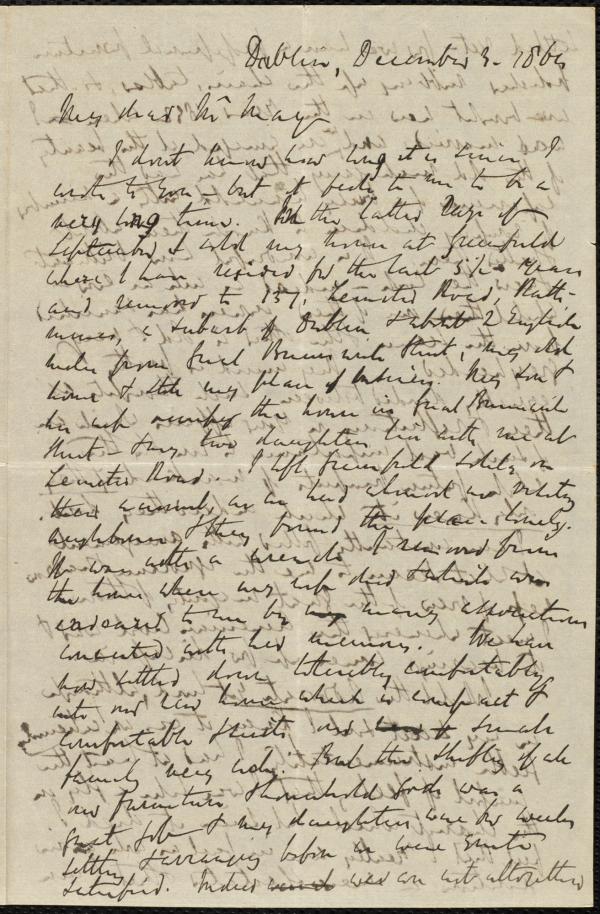 Dublin, December 3. 186
My dear Mr May
I don't know how long it is since I
wrote to you — but it feels to me to be a
very long time. In the latter days of
September I sold my house at Greenfield
where I have resided for the last 5½ years
and removed to 157, Leinster Road, Rath-
mines, a suburb of Dublin & about 2 English
miles from Great Brunswick Street, my old
home & still my place of business. My son &
his wife occupy the house in Great Brunswick
Street — & my two daughters live with me at
Leinster Road. I left Greenfield solely on
their account, as we had almost no visiting
neighbours & they found the place lonely.
It was with a wrench I removed from
the house where my wife died & which was
endeared to me by my many associations
connected with her memory. We have
now settled down tolerably comfortably
into our new house which is compact &
comfortable & suits our small
family very well. But the shifting of all
our furniture & household gods was a
great job & my daughters were six weeks
settling & arranging before we were quite
satisfied. Indeed we are not altogether